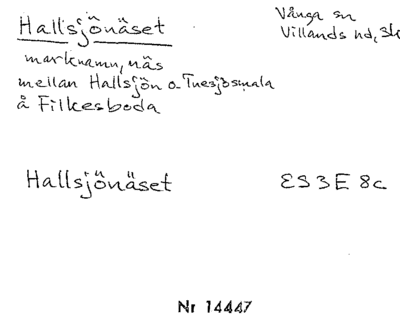 Hallsjönäset
Vånga sn
Villands hd, Sk
marknamn, näs
mellan Hallsjön o Tuesjösmala
å Filkesboda
Hallsjönäset
ES 3 E 8c
Nr 14447